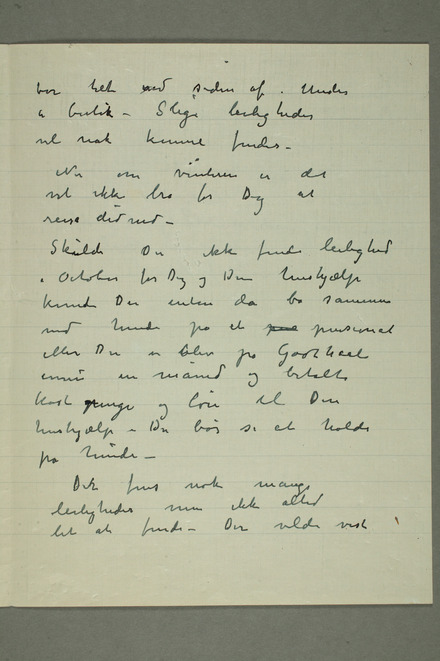 bor helt ved siden af. Under
a butik – Slige leiligheder
vil nok kunne findes –
Nu om vinteren er det
vel ikke bra for Dig at
reise did ned –
Skulde Du ikke finde leilighed
i October for Dig og Din hushjælp
kunde Du enten da bo sammen
med hende på et pensionat
eller Du er blev på Godthaab
ennu en måned og betalte
kost penge og løn til Din
hushjælp – Du bør se at holde
på hende –
Det fins nok mange
leiligheder men ikke altid
let at finde – Du vilde vist